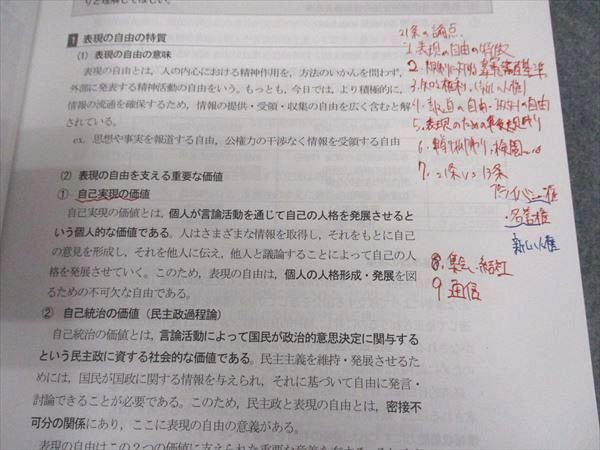 りと理解してほしい。
1 表現の自由の特質
(1) 表現の自由の意味
表現の自由とは，人の内心における精神作用を，方法のいかんを問わず，
外部に発表する精神活動の自由をいう。もっとも，今日では，より積極的に，
情報の流通を確保するため，情報の提供・受領・収集の自由を広く含むと解
されている。
ex. 思想や事実を報道する自由，公権力の干渉なく情報を受領する自由
(2) 表現の自由を支える重要な価値
① 自己実現の価値
自己実現の価値とは，個人が言論活動を通じて自己の人格を発展させると
いう個人的な価値である。人はさまざまな情報を取得し，それをもとに自己
の意見を形成し，それを他人に伝え，他人と議論することによって自己の人
格を発展させていく。このため，表現の自由は，個人の人格形成・発展を図
るための不可欠な自由である。
② 自己統治の価値（民主政過程論）
自己統治の価値とは，言論活動によって国民が政治的意思決定に関与する
という民主政に資する社会的な価値である。民主主義を維持・発展させるた
めには，国民が国政に関する情報を与えられ，それに基づいて自由に発言・
討論できることが必要である。このため，民主政と表現の自由とは，密接不
可分の関係にあり，ここに表現の自由の意義がある。
表現の自由はこの2つの価値に支えられた重要な意義を
21条の論点
1. 表現の自由の特徴
2. 規制に対する審査基準
3. 知る権利
4. 報道の自由・取材の自由
5. 表現のための
6. 事前抑制，検閲
7. 21条 vs 13条
プライバシー権
・名誉権
新しい人権
8. 集会・結社
9 通信